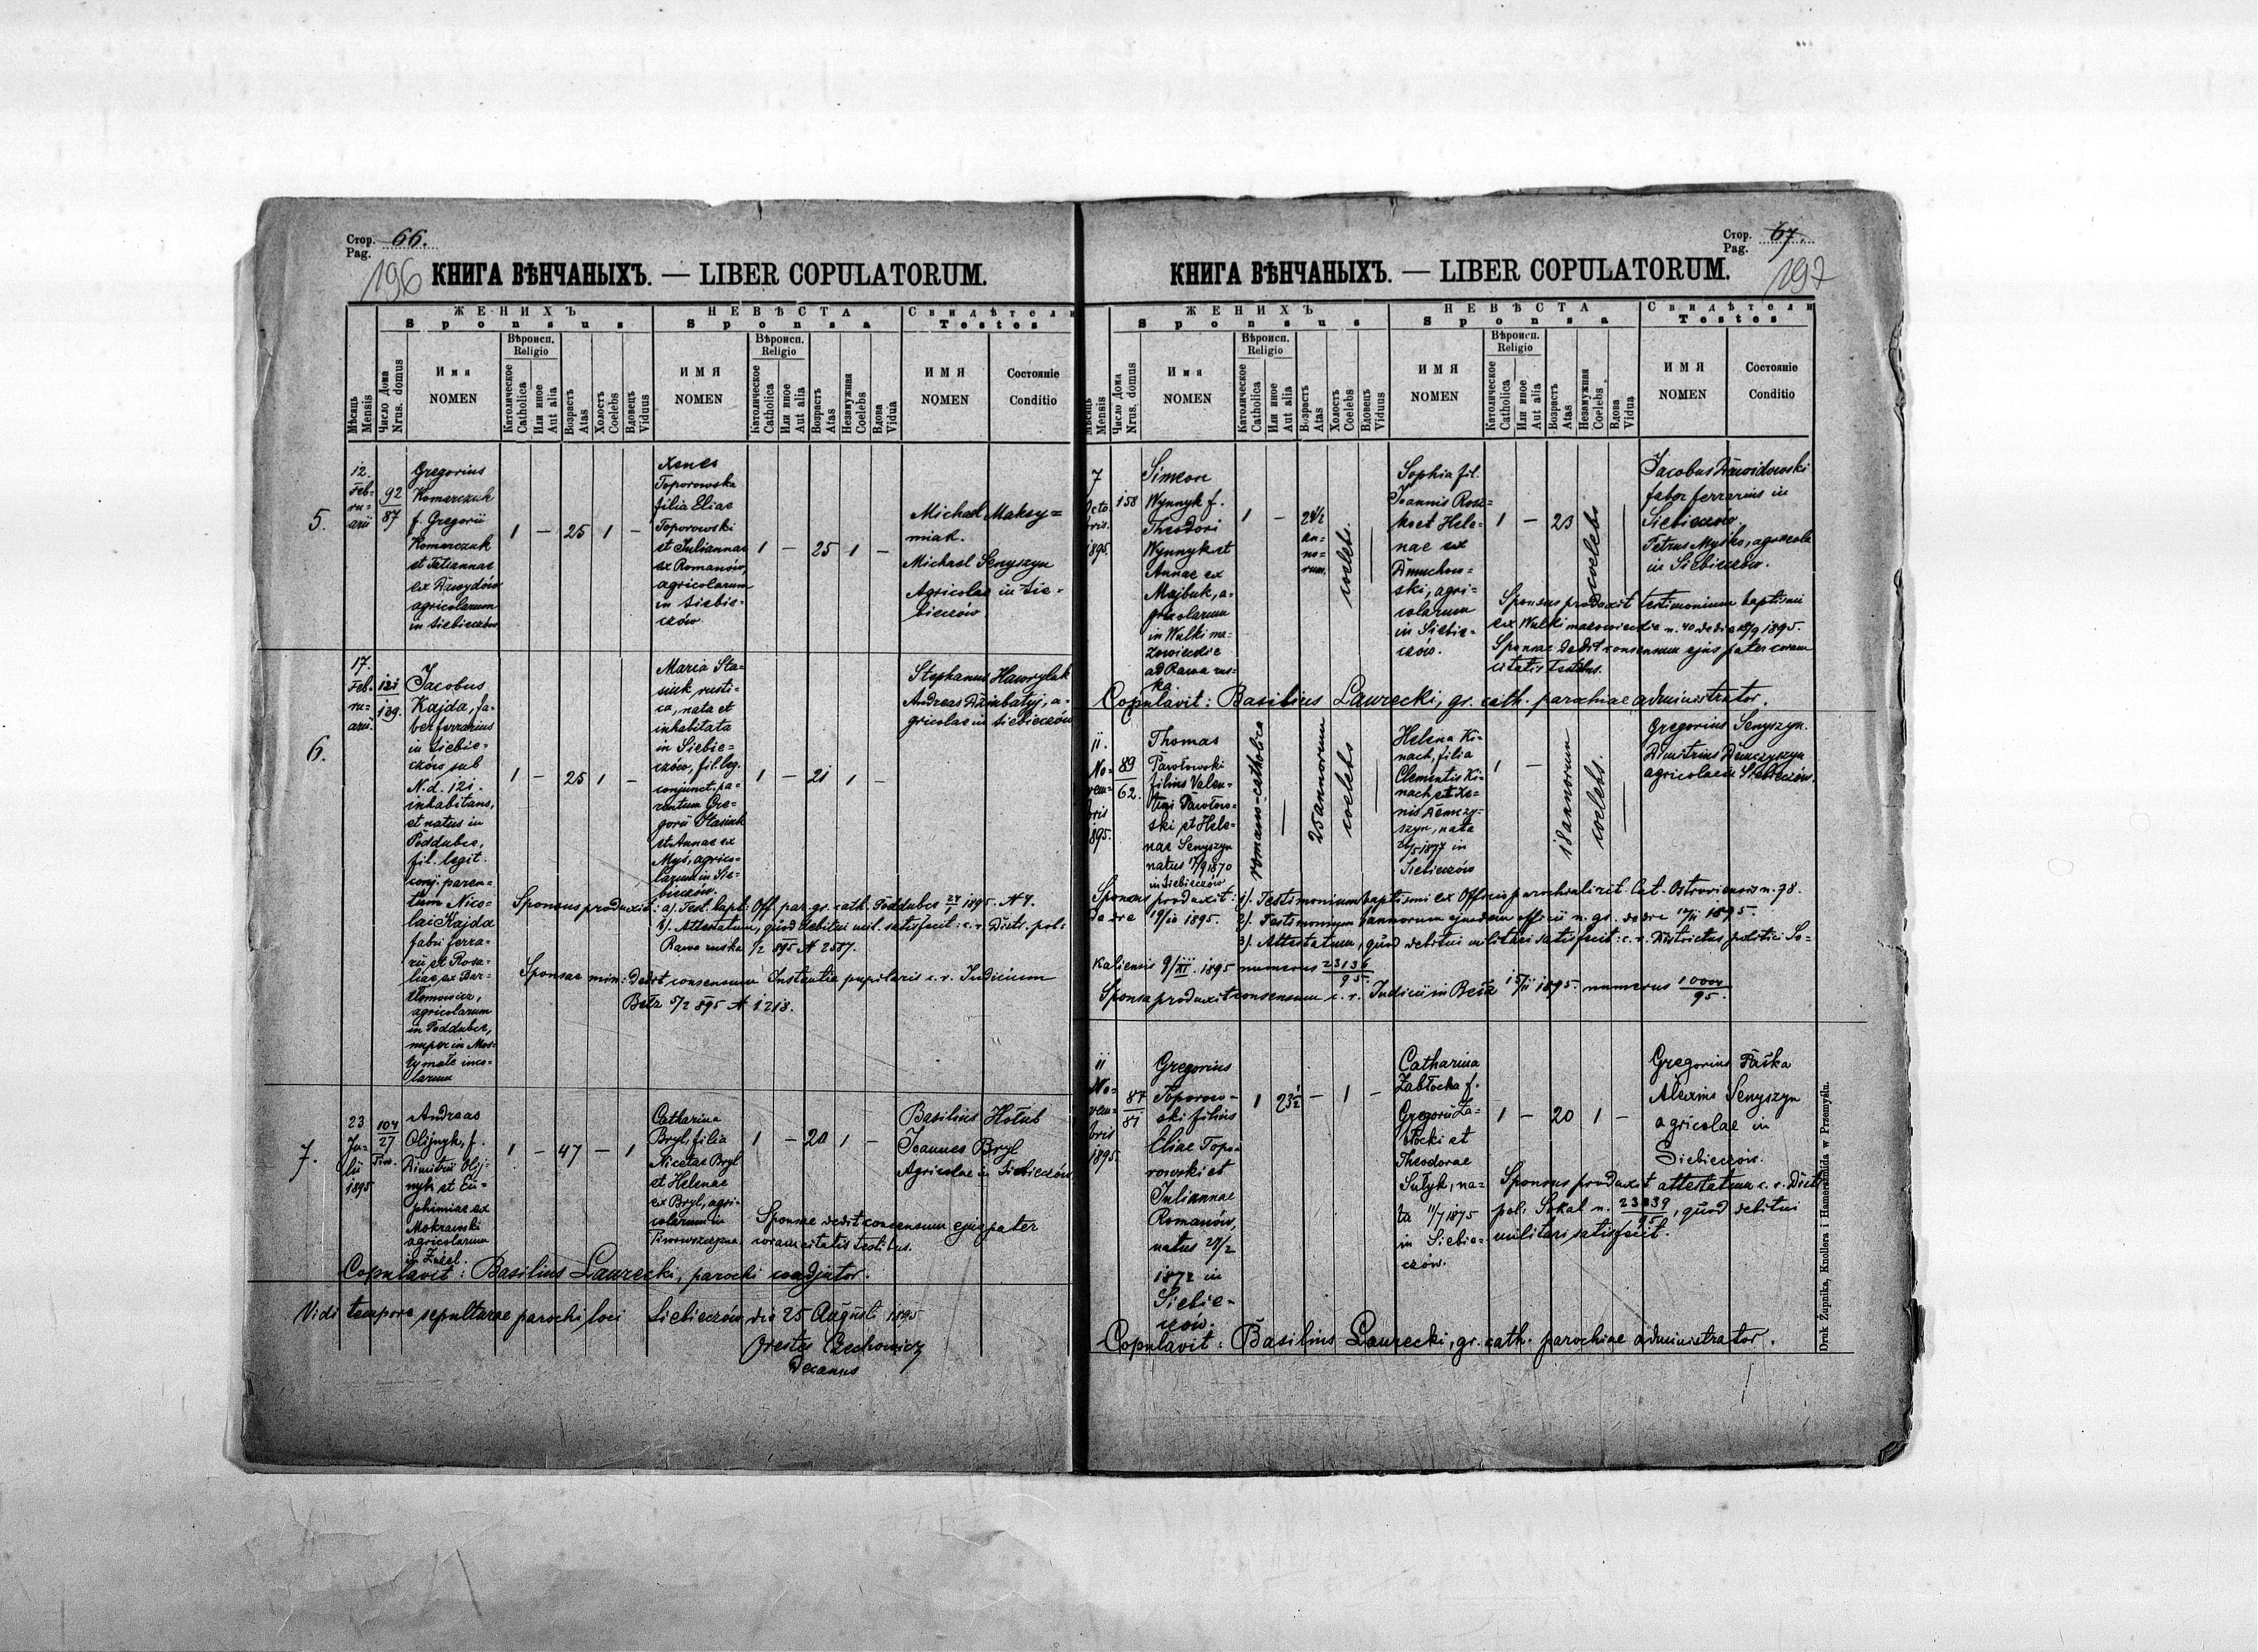 Стор. 66.
Pag.
196
КНИГА ВѢНЧАНЫХЪ. — LIBER COPULATORUM.
Мѣсяць Mensis
Число Дома Nrus. domus
ЖЕНИХЪ
Sponsus
Имя
NOMEN
Вѣроисп.
Religio
Католическое Catholica
Или иное Aut alia
Возрастъ Atas
Холостъ Coelebs
Вдовецъ Viduus
НЕВѢСТА
Sponsa
ИМЯ
NOMEN
Вѣроисп.
Religio
Католическое Catholica
Или иное Aut alia
Возрастъ Atas
Незамужная Coelebs
Вдова Vidua
Свидѣтели
Testes
ИМЯ
NOMEN
Состояніе
Conditio
5.
12
Feb=
ru=
arii
92
87
Gregorius
Komarczuk
f. Gregorii
Komarczuk
et Tatiannae
ex Dawydów
agricolarum
in Siebieczów
1 — 25 1 —
Xenes
Toporowska
filia Eliae
Toporowski
et Juliannae
ex Romanów,
agricolarum
in Siebie=
czów
1 — 25 1 —
Michael Maksy=
miak.
Michael Senyszyn
Agricolae in Sie=
bieczów
6.
17.
Feb.
ru=
arii.
121
139.
Jacobus
Kajda, fa=
ber ferrarius
in Siebie=
czów sub
N. d. 121.
inhabitans,
et natus in
Poddubce,
fil. legit.
conj. paren=
tum Nico=
lai Kajda
fabri ferra=
rii et Rosa=
liae ex Bar=
tłomowicz,
agricolarum
in Poddubce,
nuper in Mos=
ty małe inco=
larum
1 — 25 1 —
Maria Sta=
siuk, rusti=
ca, nata et
inhabitata
in Siebie=
czów, fil. leg.
conjunct. pa=
rentum Gre=
gorii Stasiuk
et Annae ex
Myś, agrico=
larum in Sie=
bieczów.
1 — 21 1 —
Stephanus Hawrylak
Andreas Dzimbatyj, a=
gricolae in Siebieczów
Sponsus produxit: a). Test. bapt: Off. par. gr. cath. Poddubce 24/1 1895. N 4.
b). Attestatum, quod debitui mil. satisfecit: c. r. Distr. pol:
Rawa ruska 1/2 895 N 2587.
Sponsae min: Dedit consensum Instantia pupilaris c. r. Judicium
Bełz 5/2 895 N 1218.
7.
23
Ju=
lii
1895
104
27
Andreas
Olijnyk, f.
Dimitrii Olij=
nyk et Eu=
phimiae ex
Mokrawski
agricolarum
in Żużel.
1 — 47 — 1
Catharina
Bryl, filia
Nicetae Bryl
et Helenae
ex Bryl, agri=
colarum in
Piwowszczyzna.
1 — 20 1 —
Basilius Hołub
Joannes Bryl
Agricolae in Siebieczów
Sponsae dedit consensum ejus pater
coram citatis testibus.
Copulavit: Basilius Laurecki, parochi coadjutor.
Vidi tempore sepulturae parochi loci Siebieczów die 25 Augusti 1895
Orestes Czechowicz
Decanus
Стор. 67.
Pag.
197
КНИГА ВѢНЧАНЫХЪ. — LIBER COPULATORUM.
Мѣсяць Mensis
Число Дома Nrus. domus
ЖЕНИХЪ
Sponsus
Имя
NOMEN
Вѣроисп.
Religio
Католическое Catholica
Или иное Aut alia
Возрастъ Atas
Холостъ Coelebs
Вдовецъ Viduus
НЕВѢСТА
Sponsa
ИМЯ
NOMEN
Вѣроисп.
Religio
Католическое Catholica
Или иное Aut alia
Возрастъ Atas
Незамужная Coelebs
Вдова Vidua
Свидѣтели
Testes
ИМЯ
NOMEN
Состояніе
Conditio
7
Octo
bris.
1895.
158
Simeon
Wynnyk f.
Theodori
Wynnyk et
Annae ex
Majbuk, a=
gricolarum
in Wulki ma=
zowieckie
ad Rawa rus=
ka.
1 — 24½
an=
no=
rum.
coelebs.
Sophia fil.
Joannis Rosz=
ko et Hele=
nae ex
Dmuchow=
ski, agri=
colarum
in Siebie=
czów.
1 — 23 coelebs
Jacobus Dawidowski
faber ferrarius in
Siebieczów,
Petrus Myśko, agricola
in Siebieczów.
Sponsus produxit testimonium baptismi
ex Wulki mazowieckie n. 40 de die 1895.
Sponsae dedit consensum ejus pater coram
citatis testibus.
Copulavit: Basilius Laurecki, gr. cath. parochiae administrator.
11.
No=
vem=
bris
1895.
89
62.
Thomas
Pawłowski
filius Valen=
tini Pawłow=
ski, et Hele=
nae Senyszyn
natus 17/9 1870
in Siebieczów
romano-catholica
—
25 annorum
coelebs
Helena Ki=
nach, filia
Clementis Ki=
nach et Xe=
nis Demczy=
szyn, nata
1877 in
Siebieczów
1 —
18 annorum
coelebs.
Gregorius Senyszyn.
Dimitrius Demczyszyn
agricolae in Siebieczów.
Sponsus produxit: 1). Testimonium baptismi ex Officio parochiali rit. Lat. Ostroviensis n. 78.
de die 19/10 1895. 2). Testimonium bannorum ejusdem officii n. 90. de die 17/11 1895.
3). Attestatum, quod debitui militari satisfecit: c. r. Districtus politici So=
kaliensis 9/XI. 1895 numerus 23136/95.
Sponsa produxit consensum c. r. Judicii in Bełz 15/11 1895. numerus 10004/95.
11
No=
vem=
bris
1895.
87
81
Gregorius
Toporow=
ski filius
Eliae Topo=
rowski et
Juliannae
Romanów,
natus 27/2
1872 in
Siebie=
czów.
1 23½ — 1 —
Catharina
Zabłocka f.
Gregorii Za=
błocki et
Theodorae
Sułyk, na=
ta 11/7 1875
in Siebie=
czów.
1 — 20 1 —
Gregorius Paśka
Alexius Senyszyn
agricolae in
Siebieczów.
Sponsus produxit attestatum c. r. Distr.
pol. Sokal n. 23839/95, quod debitui
militari satisfecit.
Copulavit: Basilius Laurecki, gr. cath. parochiae administrator.
Druk Żupnika, Knollera i Hamerschmida w Przemyślu.